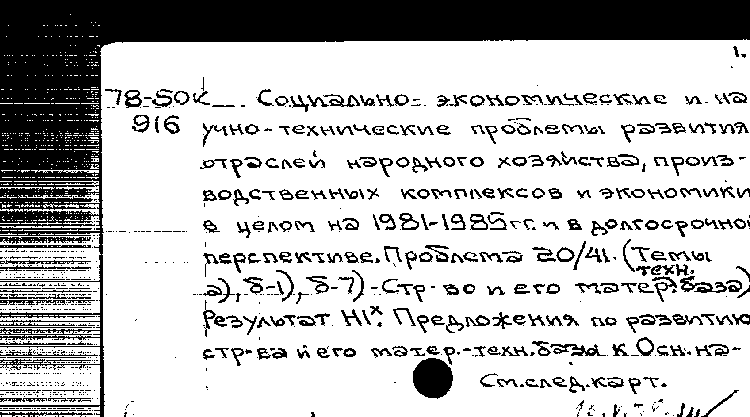 1.
78-50К Социально-экономические и на
916 учно-технические проблемы развития
отраслей народного хозяйства, произ-
водственных комплексов и экономики
в целом на 1981-1985 гг. и в долгосрочной
перспективе. Проблема 20/41. (Темы
техн.
а), б-1), б-7)-Стр-во и его матер. база)
Результат Н1х. Предложения по развитию
стр-ва и его матер.-техн. базы к Осн. на-
См.след.карт.